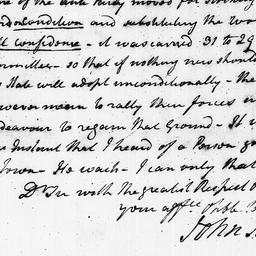 of the anti Party moved for striking
on condition and substituting the Wor
ll confidence - it was carried 31 to 29
ommittee - so that if nothing new should
State will adopt unconditionally - the
owever mean to rally their forces
ndeavour to regain that Ground - It
Instant that I heard of a Person go
Town - He waits - I can only that
Dr Sir with the greatest Respect
your affce Obble
John